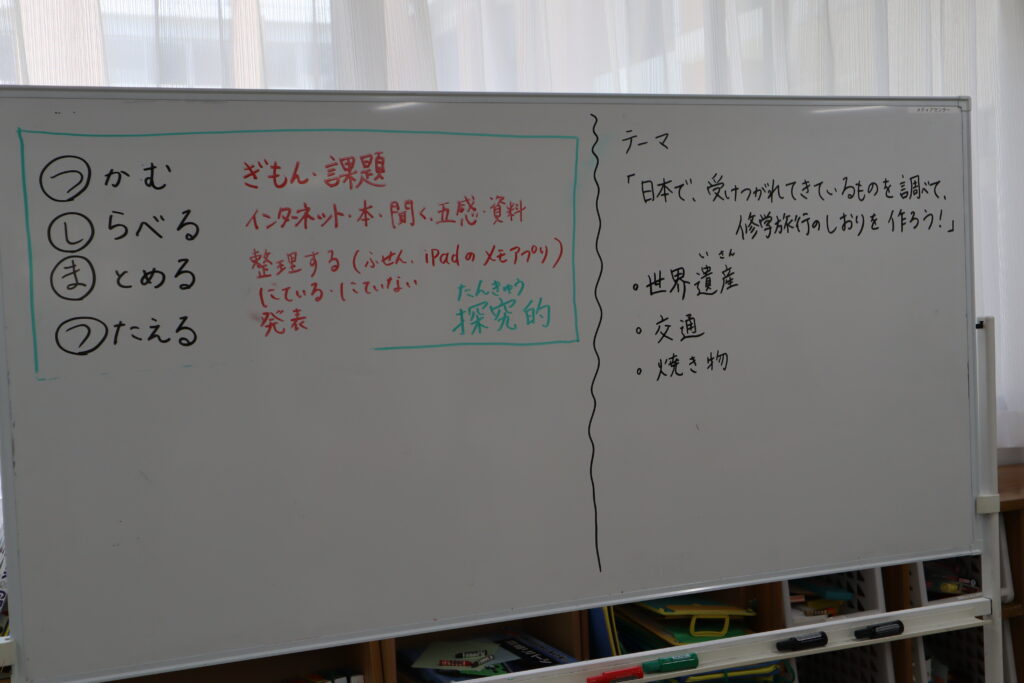 つかむ ぎもん・課題
しらべる インターネット・本・聞く、五感・資料
まとめる 整理する(ふせん、iPadのメモアプリ)
にている・にていない
つたえる 発表
たんきゅう
探究的
テーマ
「日本で、受けつがれてきているものを調べて、
修学旅行のしおりを作ろう!」
いさん
・世界遺産
・交通
・焼き物
メディアセンター